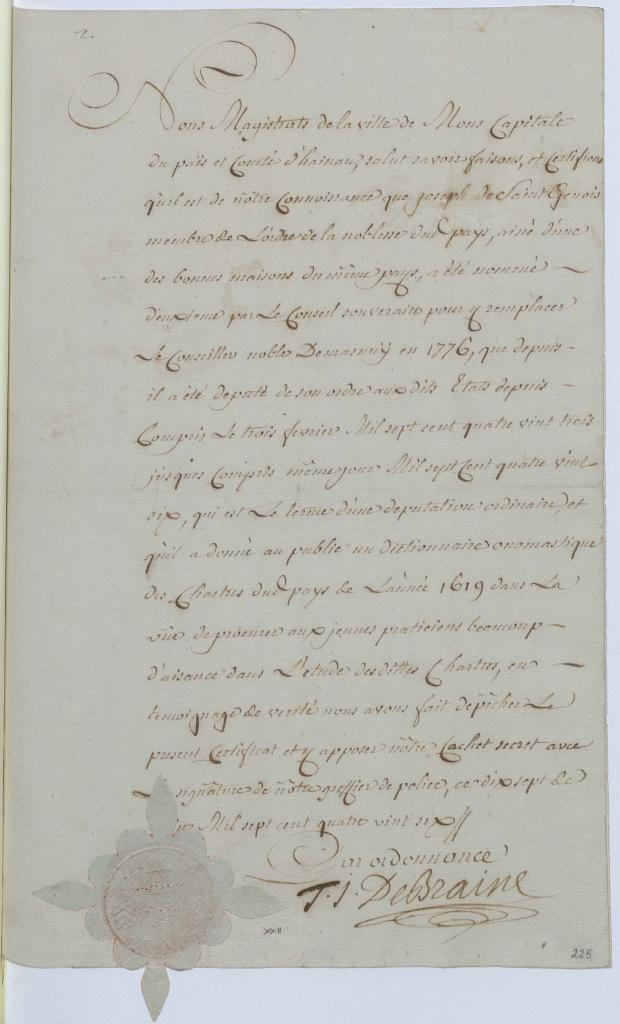 2.
Nous Magistrats de la ville de Mons Capitale
du païs et Comté d'hainau, salut savoir faisons, et Certifions
qu'il est de nôtre Connoissance que joseph de Saint Genois
membre de L'ordre de la noblesse dud pays, ainé d'une
des bonnes maisons du même pays, a été nommé
deuxieme par Le Conseil souverain pour y remplacer
Le Conseiller noble Demasnuy en 1776, que depuis
il a été deputé de son ordre aux dits Etats depuis
Compris Le trois fevrier Mil sept cent quatre vint trois
jusques Compris même jour Mil sept Cent quatre vint
six, qui est Le terme d'une deputation ordinaire, et
qu'il a donné au public un dictionnaire onomastique
des Chartres dud pays de L'année 1619 dans La
vüe de procurer aux jeunes praticiens beaucoup
d'aisance dans L'etude desdittes Chartres, en
temoignage de verité nous avons fait depêcher Le
present Certificat et y apposer nôtre Cachet secret avec
signature de nôtre greffier de police, ce dix sept de
Mil sept cent quatre vint six
Par ordonnance
T. J. DeBraine
XXII
225